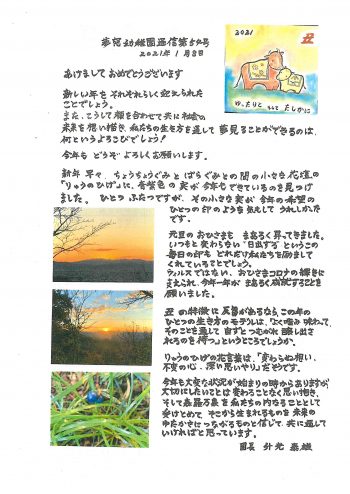 夢窓幼稚園通信第54号
2021年 1月8日
2021
丑
ゆったりと そして たしかに
あけまして おめでとうございます
新しい年を それぞれらしく 迎えられた
ことでしょう。
また、こうして 顔を合わせて 共に
未来を想い描き、私たちの生き方を通して 夢見ることができるのは、
何という よろこびでしょう！
今年も どうぞ よろしくお願いします。
新年 早々、ちょうちょうぐみと ばらぐみとの 間の小さな 花壇の
「りゅうのひげ」に、青紫色の 実が 今年も できているのを 見つけ
ました。 ひとつ ふたつですが、その小さな 実が 今年の 希望の
ひとつの 印の ようにも 気もして うれしかった
です。
元旦の おひさまも まあるく 昇ってきました。
いつもと 変わらない「日出ずる」という この
毎日の 印も どれだけ 私たちを 励まして
くれていることでしょう。
ウィルスではない、おひさまコロナの 輝きに
支えられ、今年一年が まあるく 成就することを
願いました。
丑の 特徴に 反芻があるなら、この年の
ひとつの 生き方の モデルは、「よく噛み 味わって、
そのことを通して 自ずと つむがれ 醸し出さ
れるのを 待つ」というところでしょうか。
りゅうのひげの 花言葉は、「変わらぬ想い、
不変の心、深い思いやり」だそうです。
今年も 大変な 状況が 始まりの時から ありますが、
大切にしたいことは 変わることなく 思い抱き、
そして 森羅万象を 私たちの 内なることとして
受けとめて、そこから 生まれるものを 未来の
ゆたかさに つながるものと 信じて、共に 過して
いければと 思っています。
園長